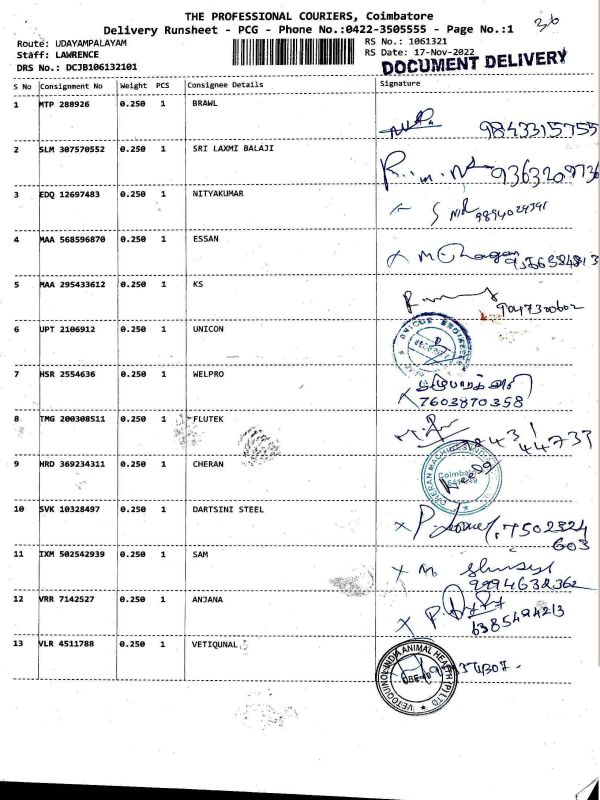 THE PROFESSIONAL COURIERS, Coimbatore
Delivery Runsheet - PCG - Phone No.:0422-3505555 - Page No.:1
36
Route: UDAYAMPALAYAM
RS No.: 1061321
Staff: LAWRENCE
RS Date: 17-Nov-2022
DRS No.: DCJB106132101
DOCUMENT DELIVERY
S No Consignment No Weight PCS Consignee Details Signature
1 MTP 288926 0.250 1 BRAWL
9843315755
2 SLM 307570552 0.250 1 SRI LAXMI BALAJI
9363209736
3 EDQ 12697483 0.250 1 NITYAKUMAR
9894029391
4 MAA 568596870 0.250 1 ESSAN
5 MAA 295433612 0.250 1 KS
9047320602
6 UPT 2106912 0.250 1 UNICON
7 HSR 2554636 0.250 1 WELPRO
7603870358
8 TMG 200308511 0.250 1 FLUTEK
44733
9 HRD 369234311 0.250 1 CHERAN
CHERAN
Coimbatore
10 SVK 10328497 0.250 1 DARTSINI STEEL
7502324
603
11 IXM 502542939 0.250 1 SAM
9994638362
12 VRR 7142527 0.250 1 ANJANA
6385494213
13 VLR 4511788 0.250 1 VETIQUNAL
VETOQUINOL INDIA ANIMAL HEALTH (P) LTD